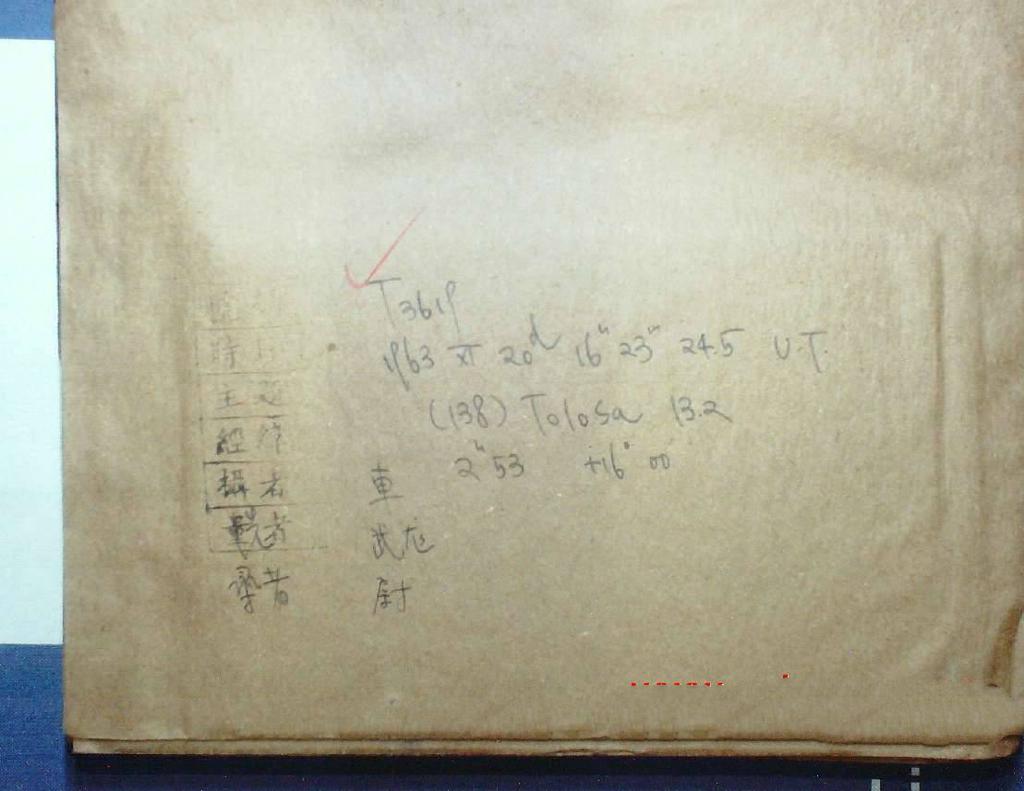 T3619
1963 XI 20d 16h 23m 24.5 U.T.
(138) Tolosa 13.2
2h 53 +16° 00
時
主
經 緯
攝者 車
者 武
者 尉